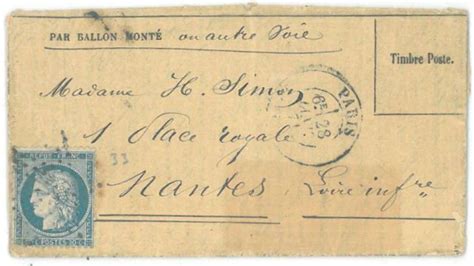 PAR BALLON MONTÉ ou autre Voie
Timbre Poste.
Madame H. Simon
PARIS
6E
28
1 Place royale
33
REPUB. FRANC.
Nantes Loire infre
POSTES